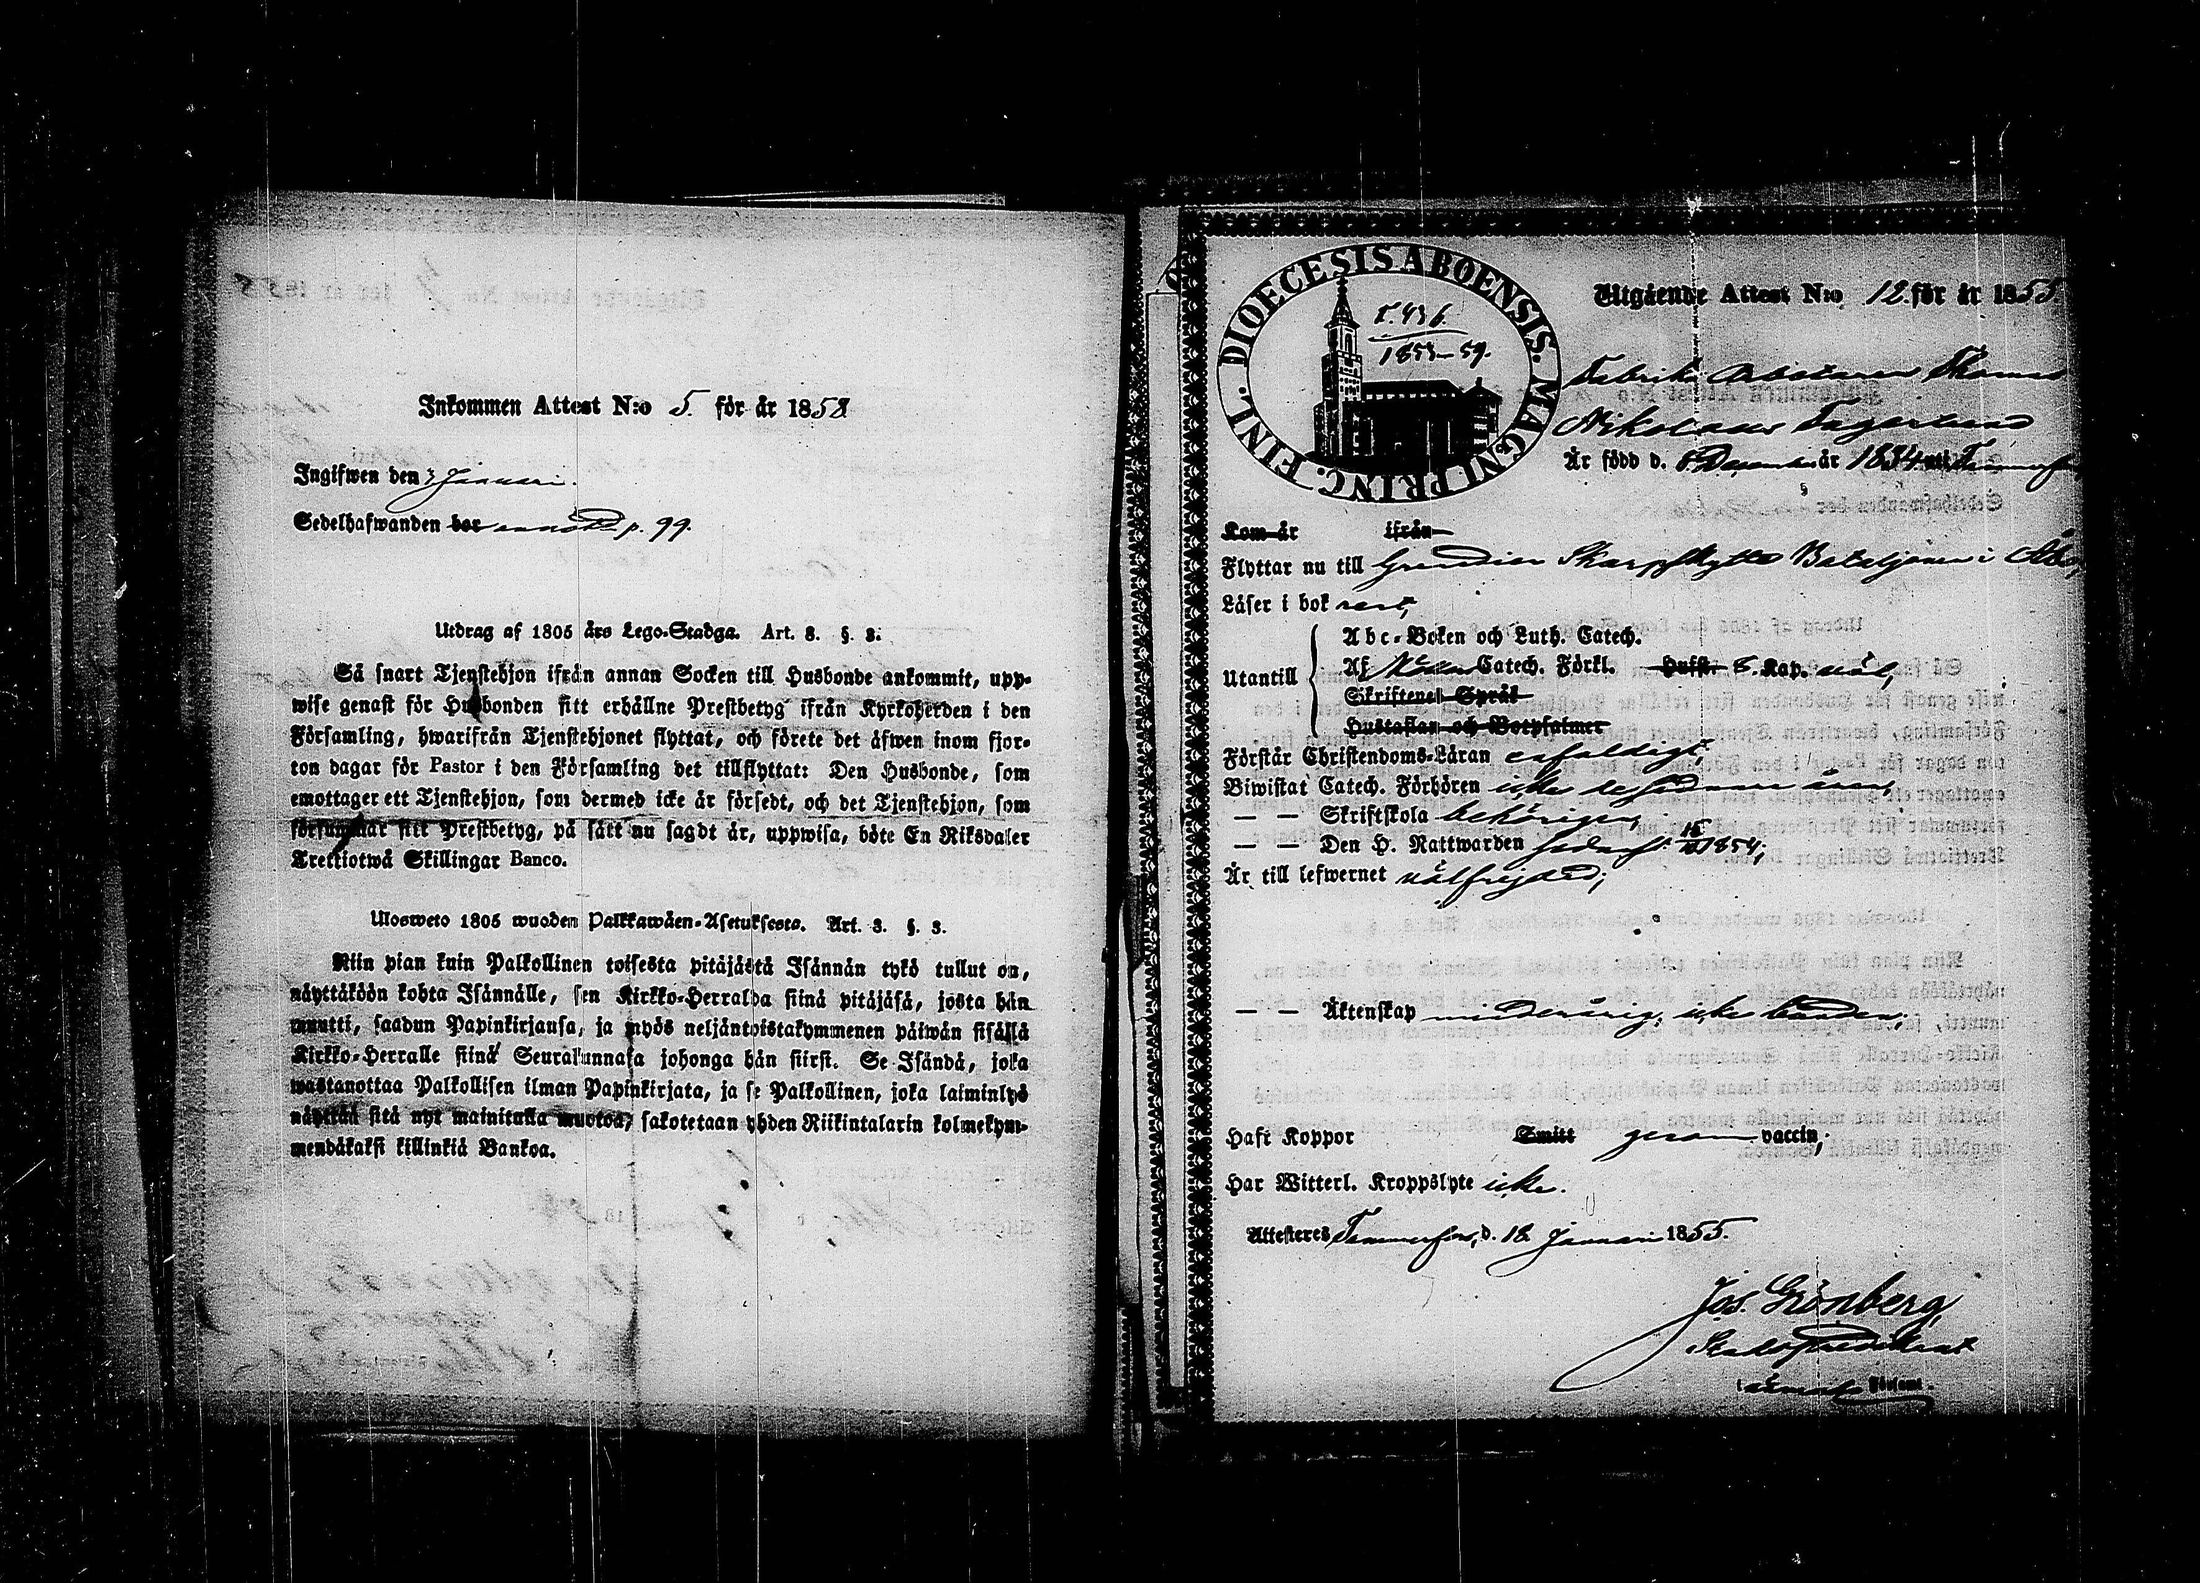 Inkommen Attest N:o 5. för år 1858
Ingifwen den 3 Januari.
Sedelhafwanden bor p. 99.
Utdrag af 1805 års Lego-Stadga. Art. 8. §. 8.
Så snart Tjenstehjon ifrån annan Socken till Husbonde ankommit, upp-
wise genast för Husbonden sitt erhållne Prestbetyg ifrån Kyrkoherden i den
Församling, hwarifrån Tjenstehjonet flyttat, och förete det äfwen inom fjor-
ton dagar för Pastor i den Församling det tillflyttat: Den Husbonde, som
emottager ett Tjenstehjon, som dermed icke är försedt, och det Tjenstehjon, som
försummar sitt Prestbetyg, på sätt nu sagdt är, uppwisa, böte En Riksdaler
Trettiotwå Skillingar Banco.
Ulosweto 1805 wuoden Palkkawäen-Asetuksesta. Art. 8. §. 8.
Niin pian kuin Palkollinen toisesta pitäjästä Isännän tykö tullut on,
näyttäköön kohta Isännälle, sen Kirkko-Herralda siinä pitäjäsä, josta hän
muutti, saadun Papinkirjansa, ja myös neljäntoistakymmenen päiwän sisällä
Kirkko-Herralle siinä Seurakunnasa johonga hän siirsi. Se Isändä, joka
wastanottaa Palkollisen ilman Papinkirjata, ja se Palkollinen, joka laiminlyö
näyttää sitä nyt mainitulla muotoa, sakotetaan yhden Riikintalarin kolmekym-
mendäkaksi killinkiä Bankoa.
DIOECESIS ABOENSIS. MAGNI PRINC. FINL.
T. 436.
1853-59.
Utgående Attest N:o 12. för år 1855
Fabriks Arbetaren Thomas
Nikolaus Fagerlund
Är född d. 6 December år 1834 uti Tammerfors
Kom år ifrån
Flyttar nu till Grenadier Skarpskytte Bataljonen i Åbo,
Läser i bok rent,
Utantill
Abc-Boken och Luth. Catech.
Af Catech. Förkl. Husft. 8. Kap. väl,
Skriftenes Språk
Hustaflan och Botpsalmer
Förstår Christendoms-Läran enfaldigt,
Biwistat Catech. Förhören icke de sednare åren,
— — Skriftskola behörigen,
— — Den H. Nattwarden sednast 1854;
Är till lefwernet välfrejdad;
— — Äktenskap minderårig, icke bunden;
Haft Koppor Smitt genom vaccin;
Har Witterl. Kroppslyte icke.
Attesteres Tammerfors, d. 18 Januari 1855.
Jos. Grönberg,
Stadspredikant